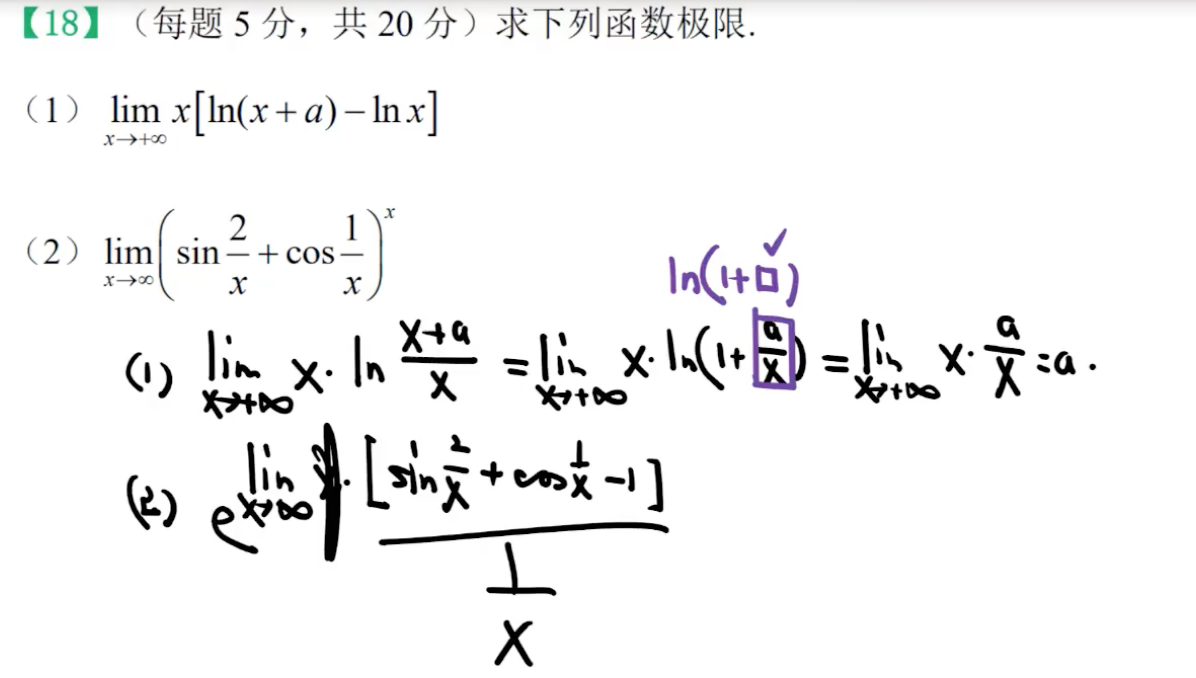 【18】（每题 5 分，共 20 分）求下列函数极限.
（1） lim x→+∞ x[ln(x+a)−ln x]
（2） lim x→∞ (sin 2/x + cos 1/x)^x
ln(1+□) ✓
(1) lim x→+∞ x· ln (x+a)/x = lim x→+∞ x· ln(1+ a/x) = lim x→+∞ x· a/x = a .
(2) e^ lim x→∞ [sin 2/x + cos 1/x −1]
1
x